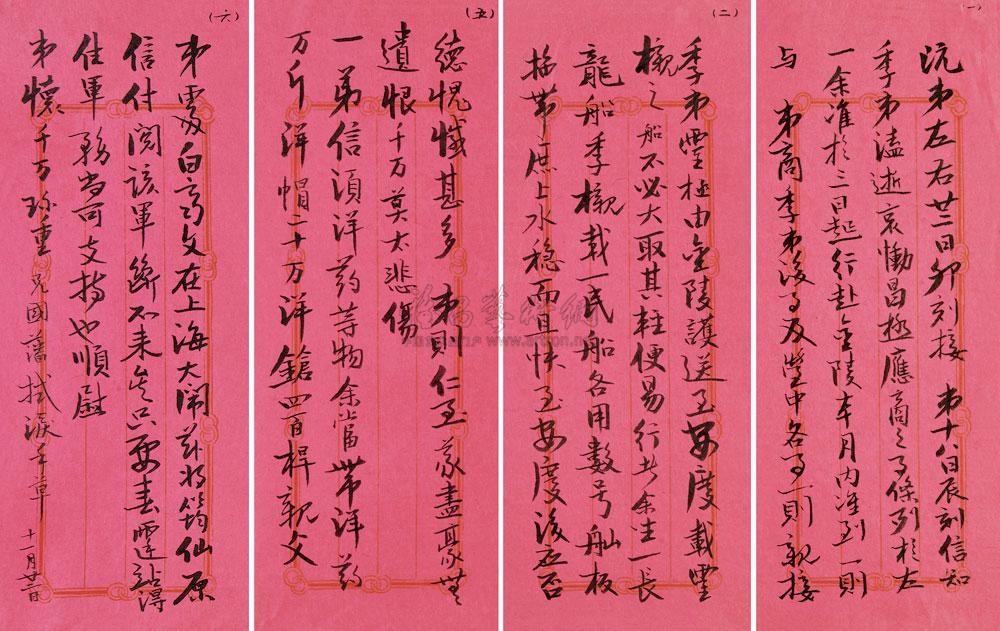 (一)
沅弟左右廿二日卯刻接 弟十八日辰刻信知
季弟溘逝哀慟曷極應商之事條列於左
一余准於三日起行赴金陵本月內准到一則
与 弟商季弟後事及營中各事一則親接
(二)
季弟靈柩由金陵護送至安慶載靈
櫬之船不必大取其輕便易行者余坐一長
龍船季櫬載一民船各用數号舢板
拖帶庶上水穩而且快至安慶後應否
(五)
德愧憾甚多 弟則仁至義盡毫無
遺恨千万莫太悲傷
一弟信須洋药等物余當帶洋药
万斤洋帽二十万洋鎗四百桿親交
(六)
弟處白齊文在上海大鬧茲將筠仙原
信付閱該軍斷不来矣只要春霆站得
住軍務尚可支持也順慰
弟懷千万珍重 兄國藩拭淚手草 十一月廿二日